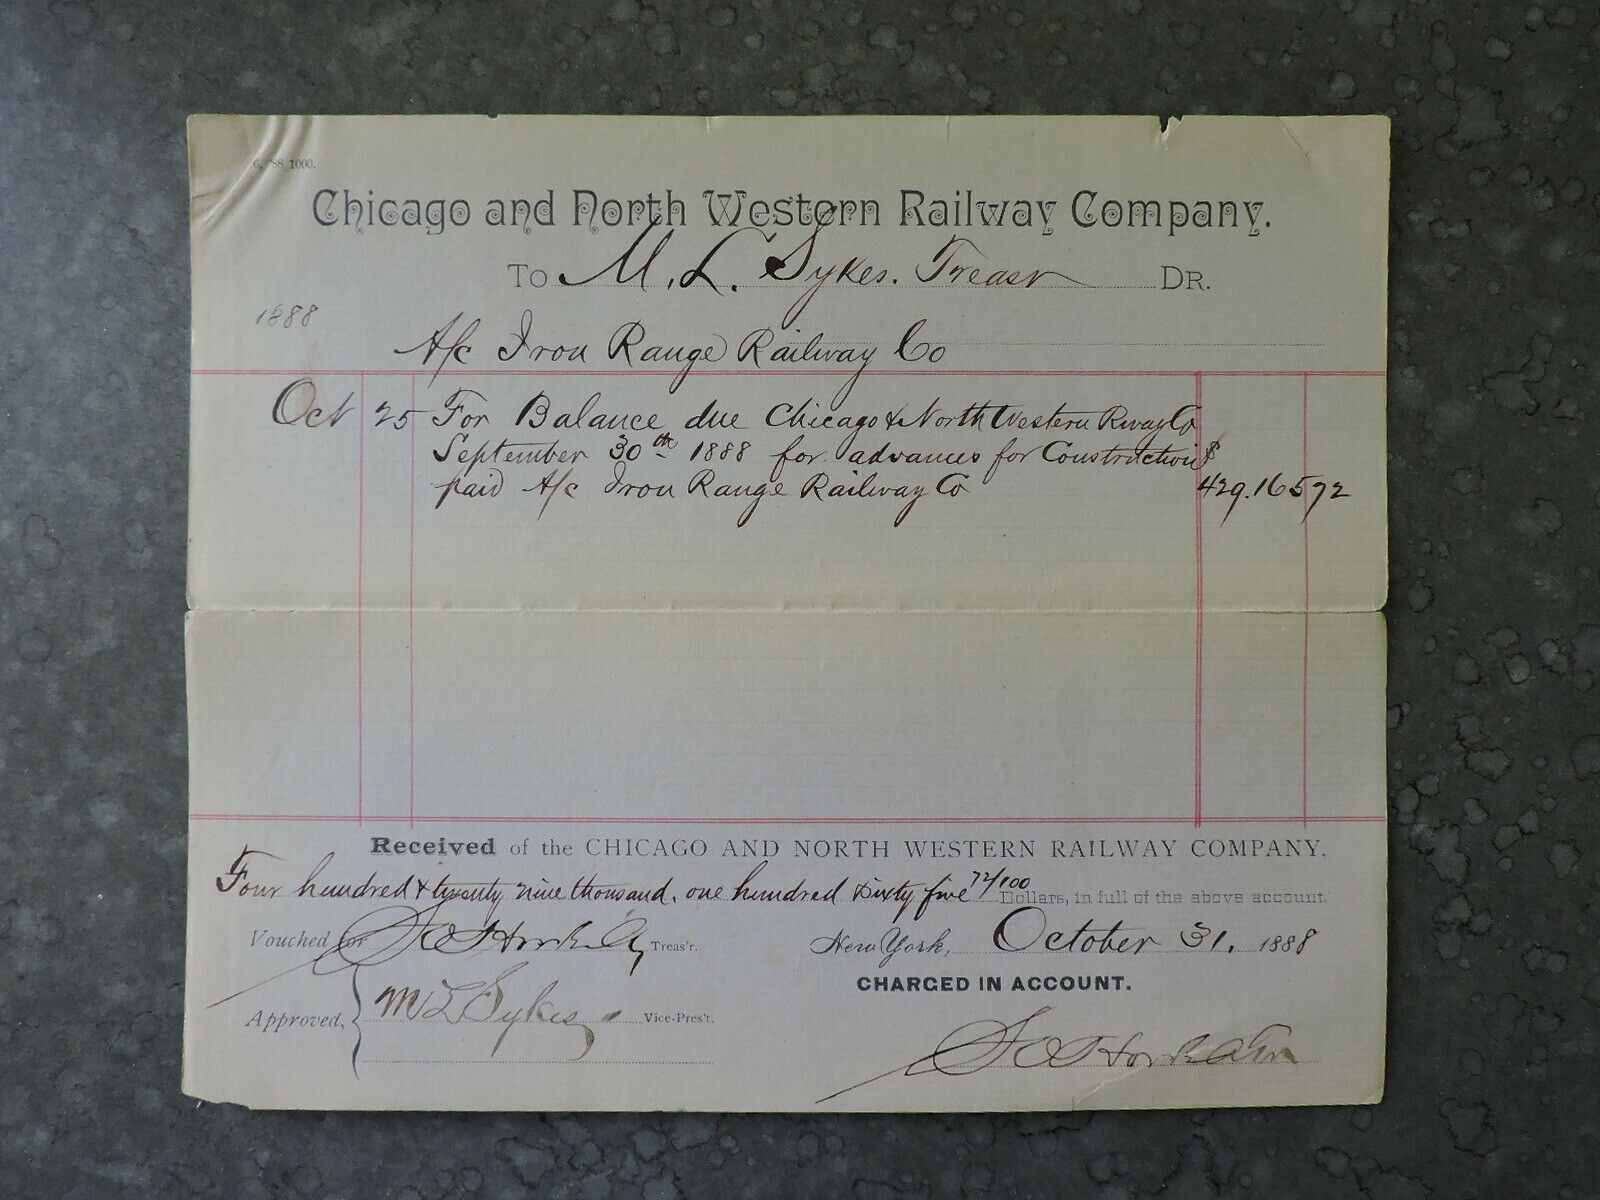 6, '88 1000.
Chicago and North Western Railway Company.
To M. L. Sykes. Treasr DR.
1888
A/c Iron Range Railway Co
Oct 25 For Balance due Chicago & North Western Rway Co
September 30th 1888 for advances for Construction $
paid A/c Iron Range Railway Co 429.165 72
Received of the CHICAGO AND NORTH WESTERN RAILWAY COMPANY,
Four hundred & twenty nine thousand. one hundred sixty five 72/100 Dollars, in full of the above account.
Vouched for Treas'r. New York, October 31. 1888
CHARGED IN ACCOUNT.
Approved, M L Sykes Vice-Pres't.